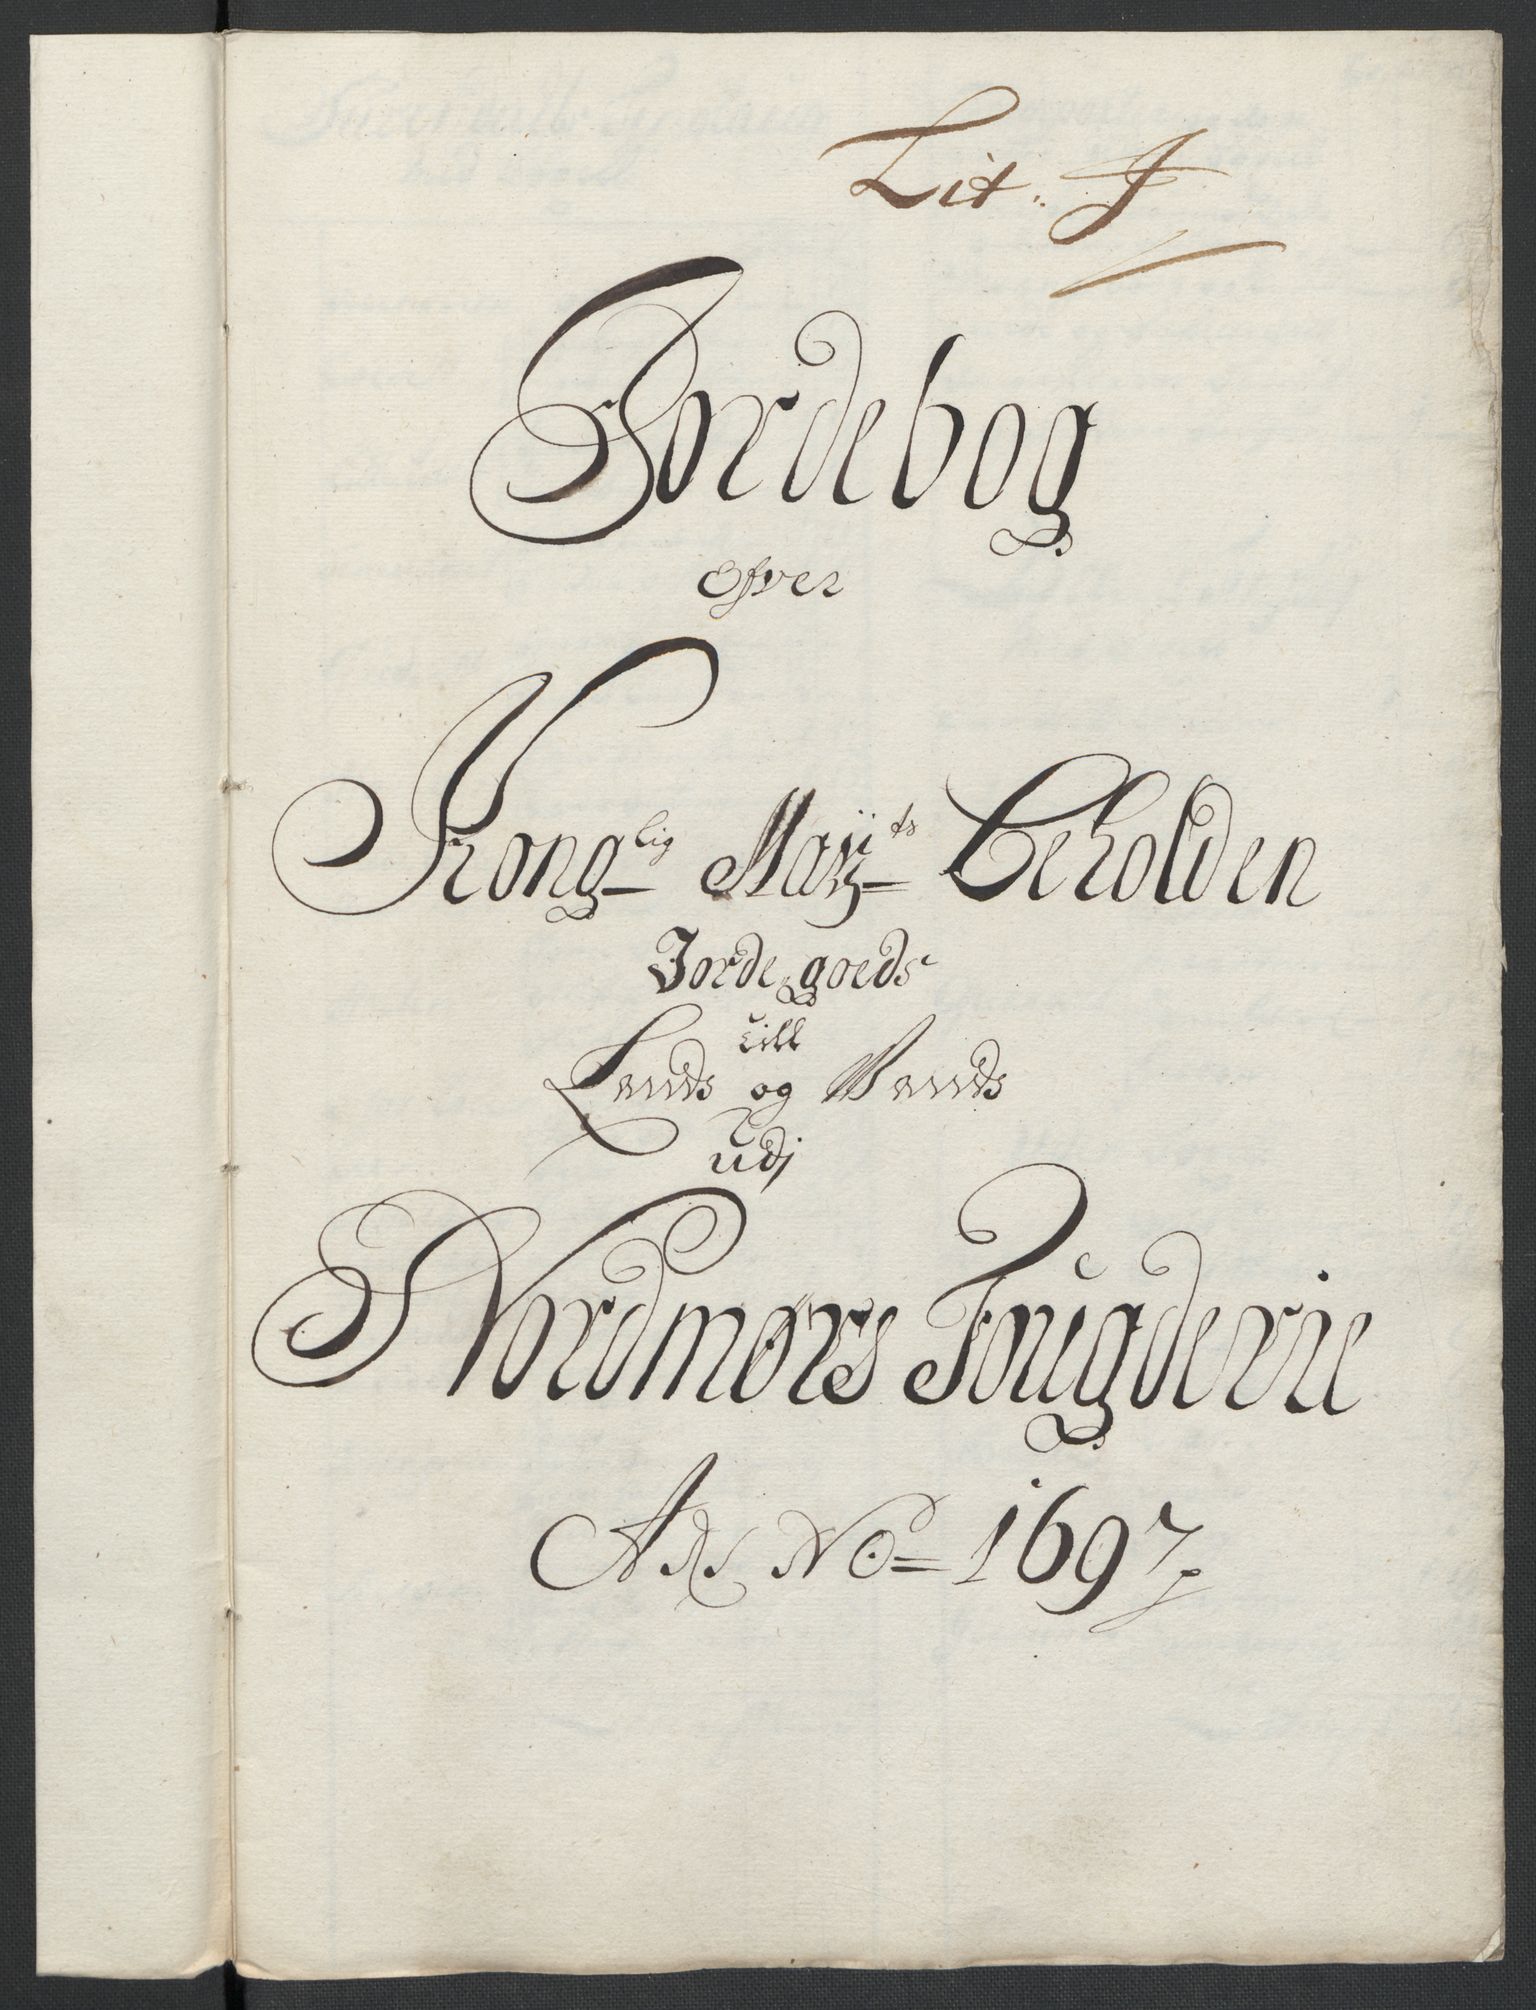 Lit: J
Jordebog
Ofver
Konglig Mayts beholden
Jorde goeds
till
Lands og Vands
udj
Nordmørs Fougderie
An No 1697